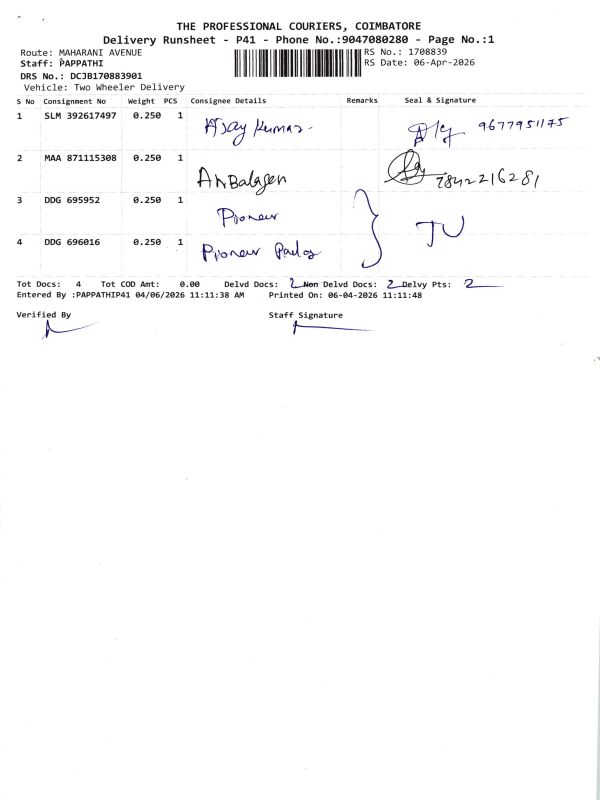 THE PROFESSIONAL COURIERS, COIMBATORE
Delivery Runsheet - P41 - Phone No.:9047080280 - Page No.:1
Route: MAHARANI AVENUE RS No.: 1708839
Staff: PAPPATHI RS Date: 06-Apr-2026
DRS No.: DCJB170883901
Vehicle: Two Wheeler Delivery
S No Consignment No Weight PCS Consignee Details Remarks Seal & Signature
1 SLM 392617497 0.250 1 Ajay Kumar 9677951175
2 MAA 871115308 0.250 1 Anbalagen 7842216281
3 DDG 695952 0.250 1 Pioneer
4 DDG 696016 0.250 1 Pioneer
Tot Docs: 4 Tot COD Amt: 0.00 Delvd Docs: 2 Non Delvd Docs: 2 Delvy Pts: 2
Entered By :PAPPATHIP41 04/06/2026 11:11:38 AM Printed On: 06-04-2026 11:11:48
Verified By Staff Signature